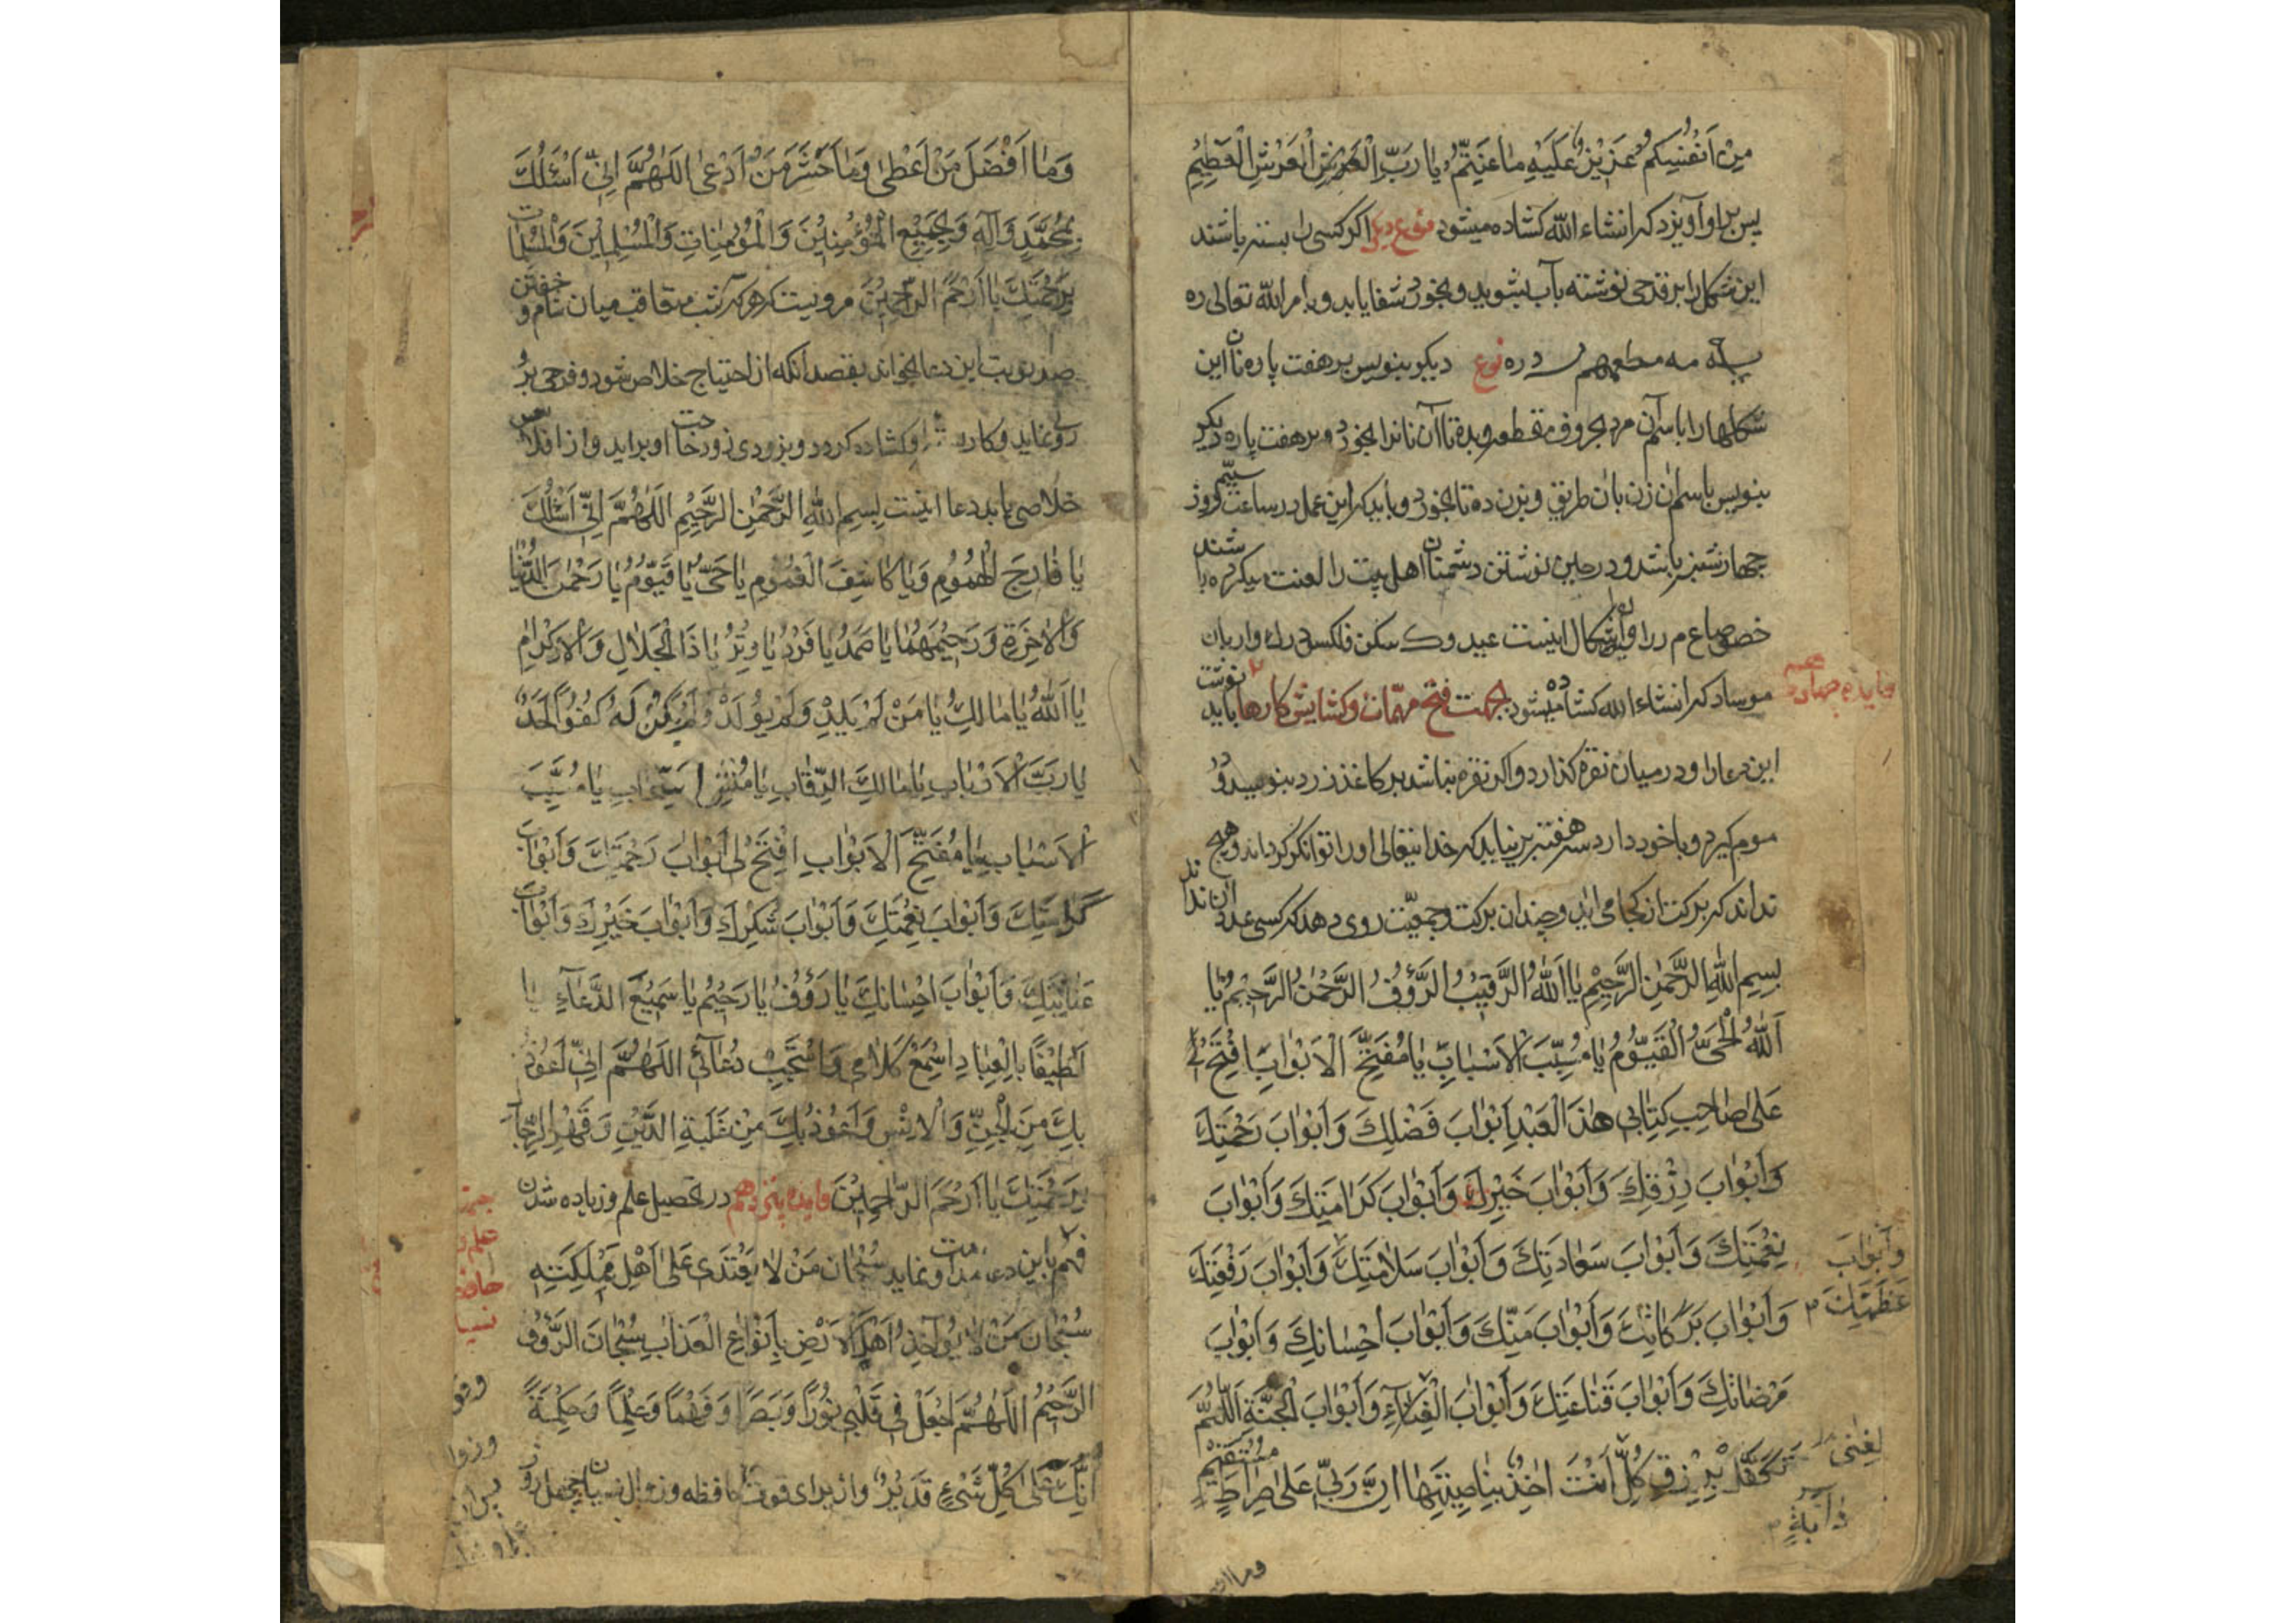 مِنْ اَنْفُسِكُمْ عَزِيْزٌ عَلَيْهِ مٰا عَنِتُّمْ يٰا رَبَّ الْعَرْشِ الْعَرْشِ الْعَظِيْمِ
پس براو آویزد که انشاء الله کشاده میشود نوع دیگر اکر کسی را بسته باشند
این شکل را بر قدحی نوشته بآب بشوید و بخورد شفا یابد و بامر الله تعالی
نوع دیکر بنویس بر هفت پاره نان این
شکلها را باسم آن مرد بحروف مقطعه و بده تا آن نانرا بخورد و بر هفت پاره دیکر
بنویس باسم آن زن بان طریق و بزن ده تا بخورد و باید که این عمل در ساعت سیّم روز
چهارشنبه باشد و در حین نوشتن دشمنان اهل بیت را لعنت میکرده باشند
خصوصا ع م ر را و اشکال اینست
که انشاء الله کشاده میشود بجهت فتح مهمّات و کشایش کارها باید نوشت
فایده چهاردهم
این دعا را و در میان نقره کذارد و اکر نقره نباشد بر کاغذ زرد بنویسد و در
موم کیرد و با خود دارد سه هفته بر نیاید که خدایتعالی او را توانکر کرداند و هیچ
نداند که برکت از کجا می اید و چندان برکت و جمعیّت روی دهد که کسی عدد ان نداند
بِسْمِ اللّٰهِ الرَّحْمٰنِ الرَّحِيْمِ يٰا اَللّٰهُ الرَّقِيْبُ الرَّؤُفُ الرَّحْمٰنُ الرَّحِيْمُ يٰا
اَللّٰهُ الْحَيُّ الْقَيُّوْمُ يٰا مُسَبِّبَ الْاَسْبٰابِ يٰا مُفَتِّحَ الْاَبْوٰابِ اِفْتَحْ لِيْ
عَلىٰ صٰاحِبِ كِتٰابِيْ هٰذَا الْعَبْدِ اَبْوٰابَ فَضْلِكَ وَاَبْوٰابَ رَحْمَتِكَ
وَاَبْوٰابَ رِزْقِكَ وَاَبْوٰابَ خَيْرِكَ وَاَبْوٰابَ كَرٰامَتِكَ وَاَبْوٰابَ
نِعْمَتِكَ وَاَبْوٰابَ سَعٰادَتِكَ وَاَبْوٰابَ سَلٰامَتِكَ وَاَبْوٰابَ رَفْعَتِكَ
وَاَبْوٰابَ عَظَمَتِكَ
وَاَبْوٰابَ بَرَكٰاتِكَ وَاَبْوٰابَ مَنِّكَ وَاَبْوٰابَ اِحْسٰانِكَ وَاَبْوٰابَ
مَرْضٰاتِكَ وَاَبْوٰابَ قَنٰاعَتِكَ وَاَبْوٰابَ الْغِنٰاءِ وَاَبْوٰابَ الْجَنَّةِ اَللّٰهُمَّ
تَكَفَّلْ بِرِزْقِ كُلِّ اَنْتَ اٰخِذٌ بِنٰاصِيَتِهٰا اِنَّ رَبِّيْ عَلىٰ صِرٰاطٍ مُسْتَقِيْمٍ
دٰآبَّةٍ
وَمٰا اَفْضَلَ مَنْ اَعْطىٰ وَمٰا مَنْ اَدْعىٰ اَللّٰهُمَّ اِنِّيْ اَسْئَلُكَ
بِمُحَمَّدٍ وَآلِهِ وَبِجَمِيْعِ الْمُؤْمِنِيْنَ وَالْمُؤْمِنٰاتِ وَالْمُسْلِمِيْنَ وَالْمُسْلِمٰاتِ
بِرَحْمَتِكَ يٰا اَرْحَمَ الرّٰاحِمِيْنَ مرویست که هر که شب متعاقب میان شام و خفتن
صد نوبت این دعا بخواند بقصد انکه از احتیاج خلاص شود و فرجی بر
روی نماید و کار کشاده کردد و بزودی زود حاجت او براید و از افلاس
خلاصی یابد دعا اینست بِسْمِ اللّٰهِ الرَّحْمٰنِ الرَّحِيْمِ اَللّٰهُمَّ اِنِّيْ اَسْئَلُكَ
يٰا فٰارِجَ الْهُمُوْمِ وَيٰا كٰاشِفَ الْغُمُوْمِ يٰا حَيُّ يٰا قَيُّوْمُ يٰا رَحْمٰنَ الدُّنْيٰا
وَالْاٰخِرَةِ وَرَحِيْمَهُمٰا يٰا صَمَدُ يٰا فَرْدُ يٰا وِتْرُ يٰا ذَا الْجَلٰالِ وَالْاِكْرٰامِ
يٰا اَللّٰهُ يٰا مٰالِكُ يٰا مَنْ لَمْ يَلِدْ وَلَمْ يُوْلَدْ وَلَمْ يَكُنْ لَهُ كُفُوًا اَحَدٌ
يٰا رَبَّ الْاَرْبٰابِ يٰا مٰالِكَ الرِّقٰابِ يٰا مُنْشِئَ السَّحٰابِ يٰا مُسَبِّبَ
الْاَسْبٰابِ يٰا مُفَتِّحَ الْاَبْوٰابِ اِفْتَحْ لِيْ اَبْوٰابَ رَحْمَتِكَ وَاَبْوٰابَ
كَرٰامَتِكَ وَاَبْوٰابَ نِعْمَتِكَ وَاَبْوٰابَ شُكْرِكَ وَاَبْوٰابَ خَيْرِكَ وَاَبْوٰابَ
عِنٰايَتِكَ وَاَبْوٰابَ اِحْسٰانِكَ يٰا رَؤُفُ يٰا رَحِيْمُ يٰا سَمِيْعَ الدُّعٰآءِ يٰا
لَطِيْفًا بِالْعِبٰادِ اِسْمَعْ كَلٰامِيْ وَاسْتَجِبْ دُعٰآئِيْ اَللّٰهُمَّ اِنِّيْ اَعُوْذُ
بِكَ مِنَ الْجِنِّ وَالْاِنْسِ وَاَعُوْذُ بِكَ مِنْ غَلَبَةِ الدَّيْنِ وَقَهْرِ الرِّجٰالِ
بِرَحْمَتِكَ يٰا اَرْحَمَ الرّٰاحِمِيْنَ فایده پانزدهم در تحصیل علم و زیاده شدن
فهم باین دعا مداومت نماید سُبْحٰانَ مَنْ لٰا يَعْتَدِيْ عَلىٰ اَهْلِ مَمْلَكَتِهِ
سُبْحٰانَ مَنْ لٰا يُؤٰاخِذُ اَهْلَ الْاَرْضِ بِاَنْوٰاعِ الْعَذٰابِ سُبْحٰانَ الرَّؤُفِ
الرَّحِيْمِ اَللّٰهُمَّ اجْعَلْ فِيْ قَلْبِيْ نُوْرًا وَبَصَرًا وَفَهْمًا وَعِلْمًا وَحِكْمَةً
اِنَّكَ عَلىٰ كُلِّ شَيْءٍ قَدِيْرٌ و از برای قوت حافظه و زوال نسیان